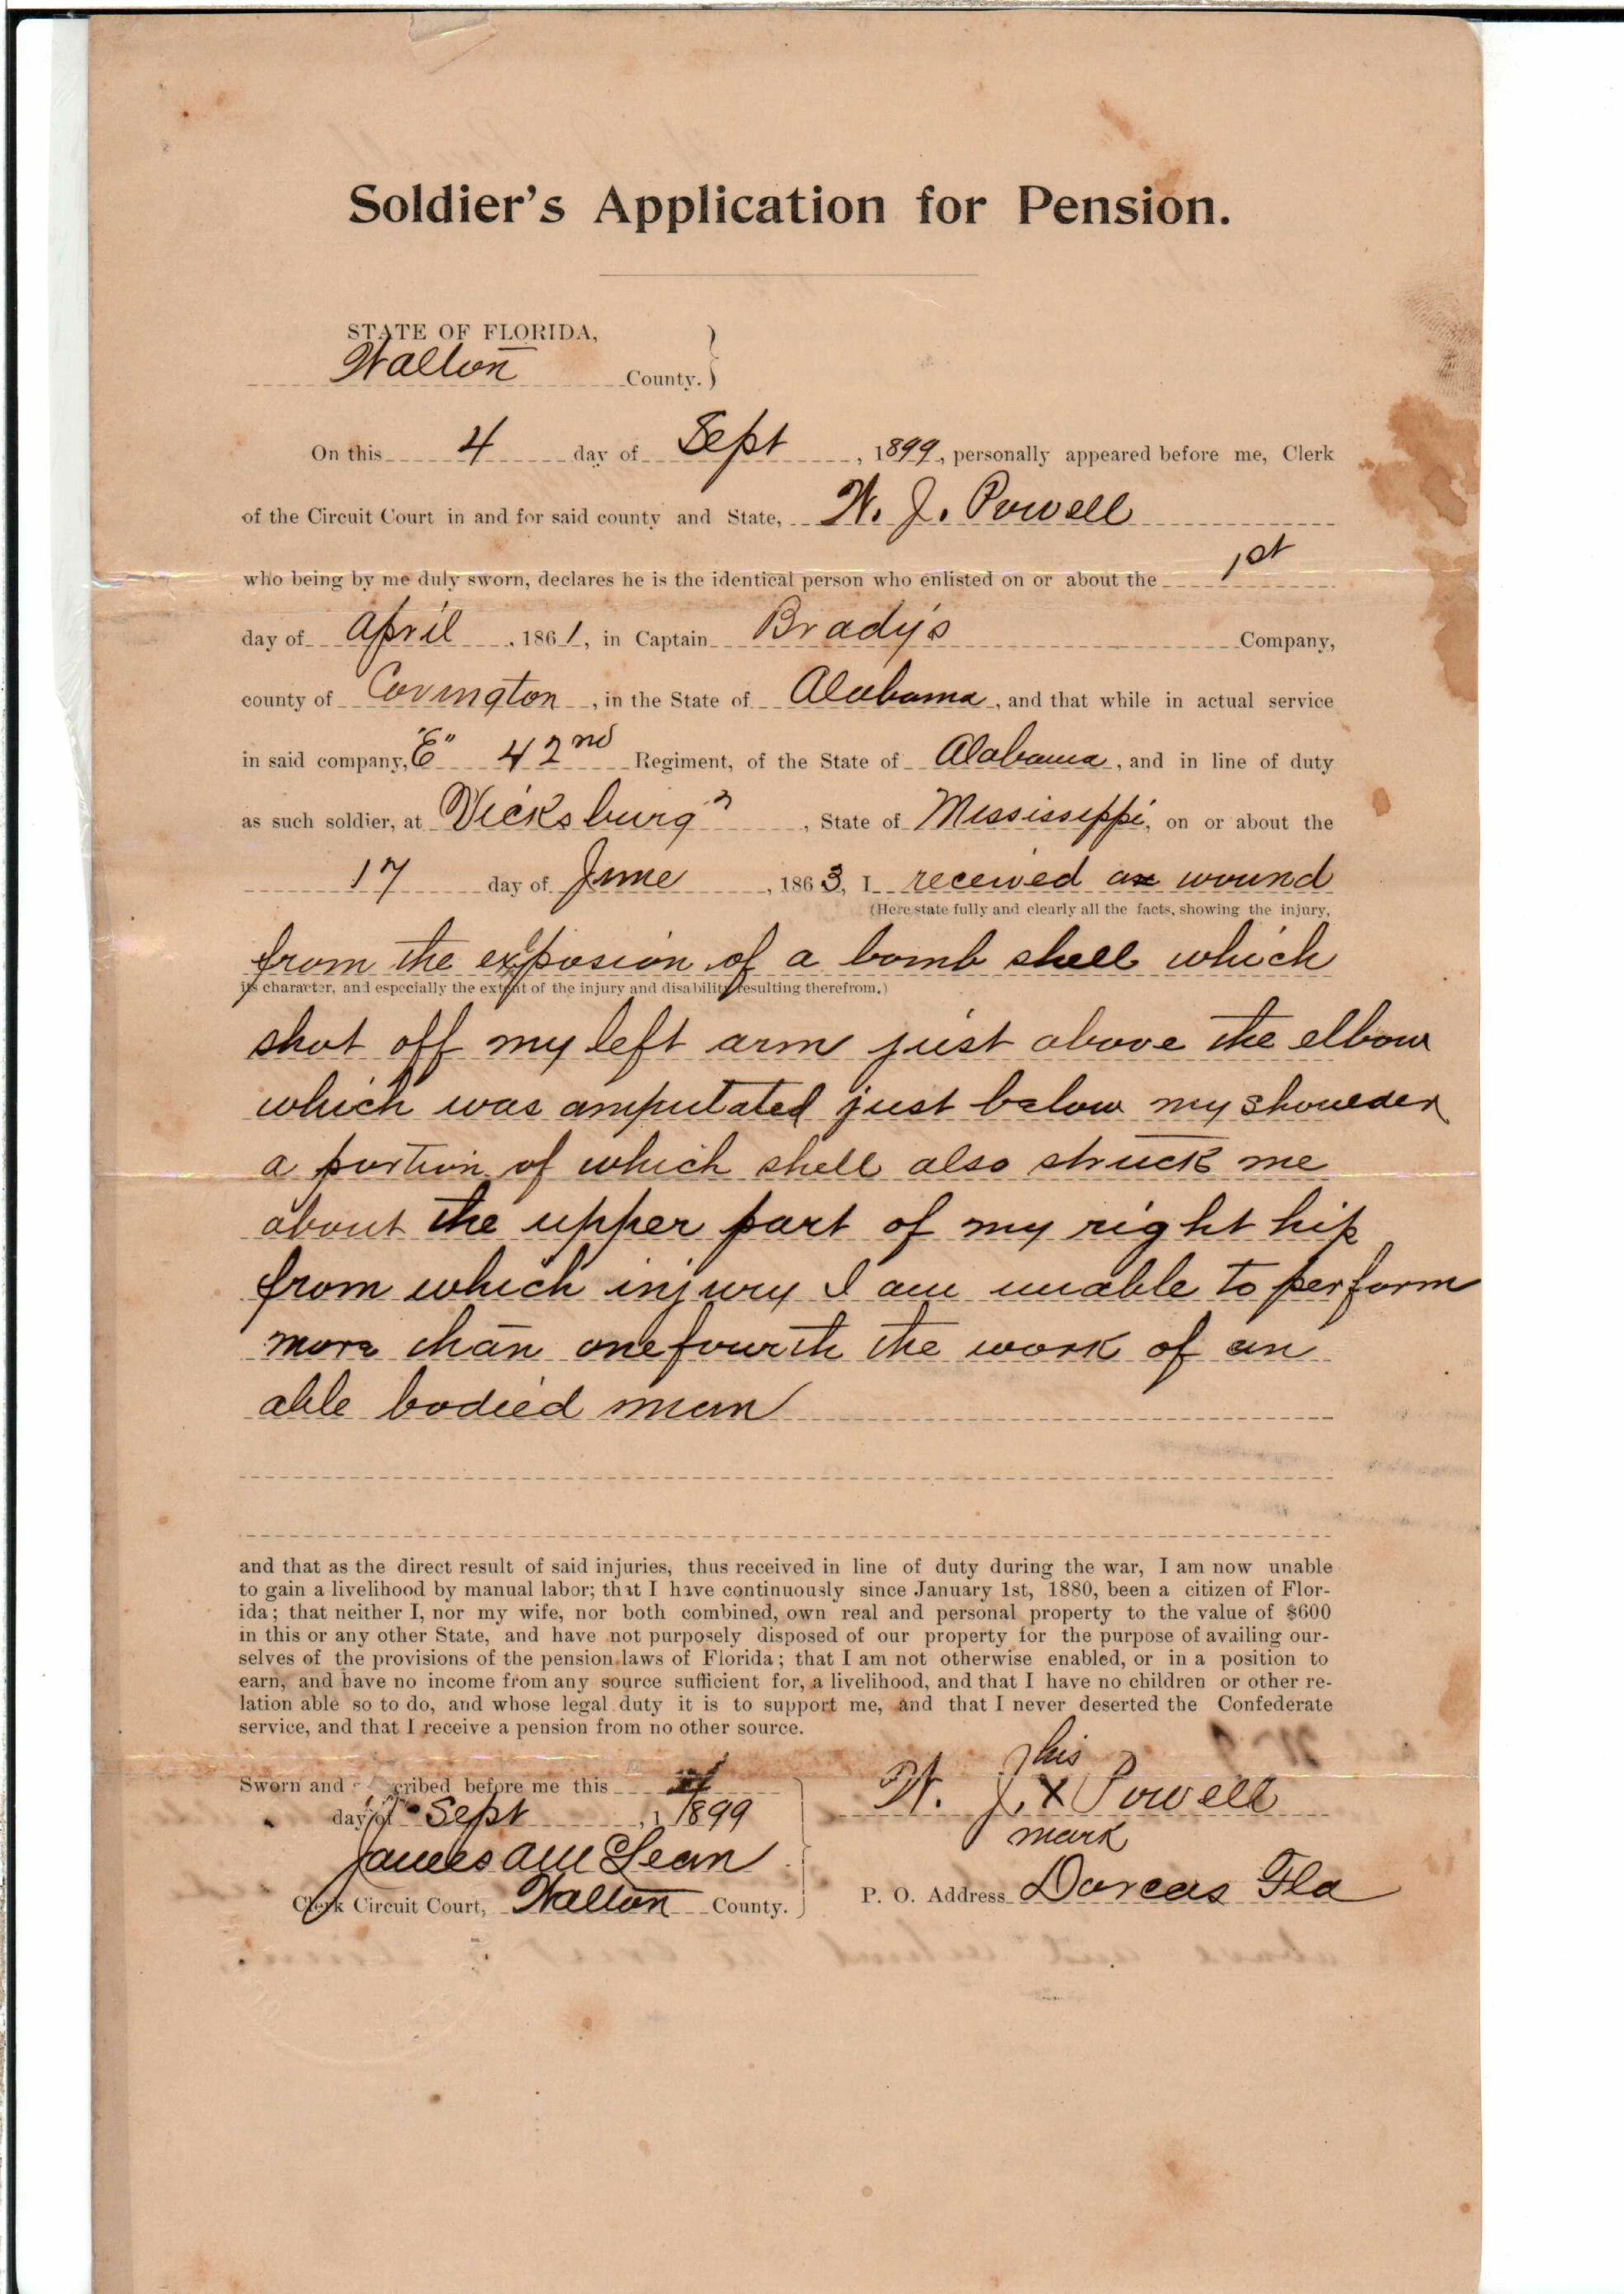 Soldier's Application for Pension.
STATE OF FLORIDA,
Walton County.
On this 4 day of Sept, 1899, personally appeared before me, Clerk
of the Circuit Court in and for said county and State, W. J. Powell
who being by me duly sworn, declares he is the identical person who enlisted on or about the 1st
day of April, 1861, in Captain Brady's Company,
county of Covington, in the State of Alabama, and that while in actual service
in said company, "E" 42nd Regiment, of the State of Alabama, and in line of duty
as such soldier, at Vicksburg, State of Mississippi, on or about the
17 day of June, 1863, I received a wound
(Here state fully and clearly all the facts, showing the injury,
from the explosion of a bomb shell which
its character, and especially the extent of the injury and disability resulting therefrom.)
shot off my left arm just above the elbow
which was amputated just below my shoulder
a portion of which shell also struck me
about the upper part of my right hip
from which injury I am unable to perform
more than one fourth the work of an
able bodied man
and that as the direct result of said injuries, thus received in line of duty during the war, I am now unable
to gain a livelihood by manual labor; that I have continuously since January 1st, 1880, been a citizen of Flor-
ida; that neither I, nor my wife, nor both combined, own real and personal property to the value of $600
in this or any other State, and have not purposely disposed of our property for the purpose of availing our-
selves of the provisions of the pension laws of Florida; that I am not otherwise enabled, or in a position to
earn, and have no income from any source sufficient for, a livelihood, and that I have no children or other re-
lation able so to do, and whose legal duty it is to support me, and that I never deserted the Confederate
service, and that I receive a pension from no other source.
Sworn and cribed before me this 4
day of Sept, 1899
James A McLean
Clerk Circuit Court, Walton County.
his
W. J. X Powell
mark
P. O. Address Dorcas Fla